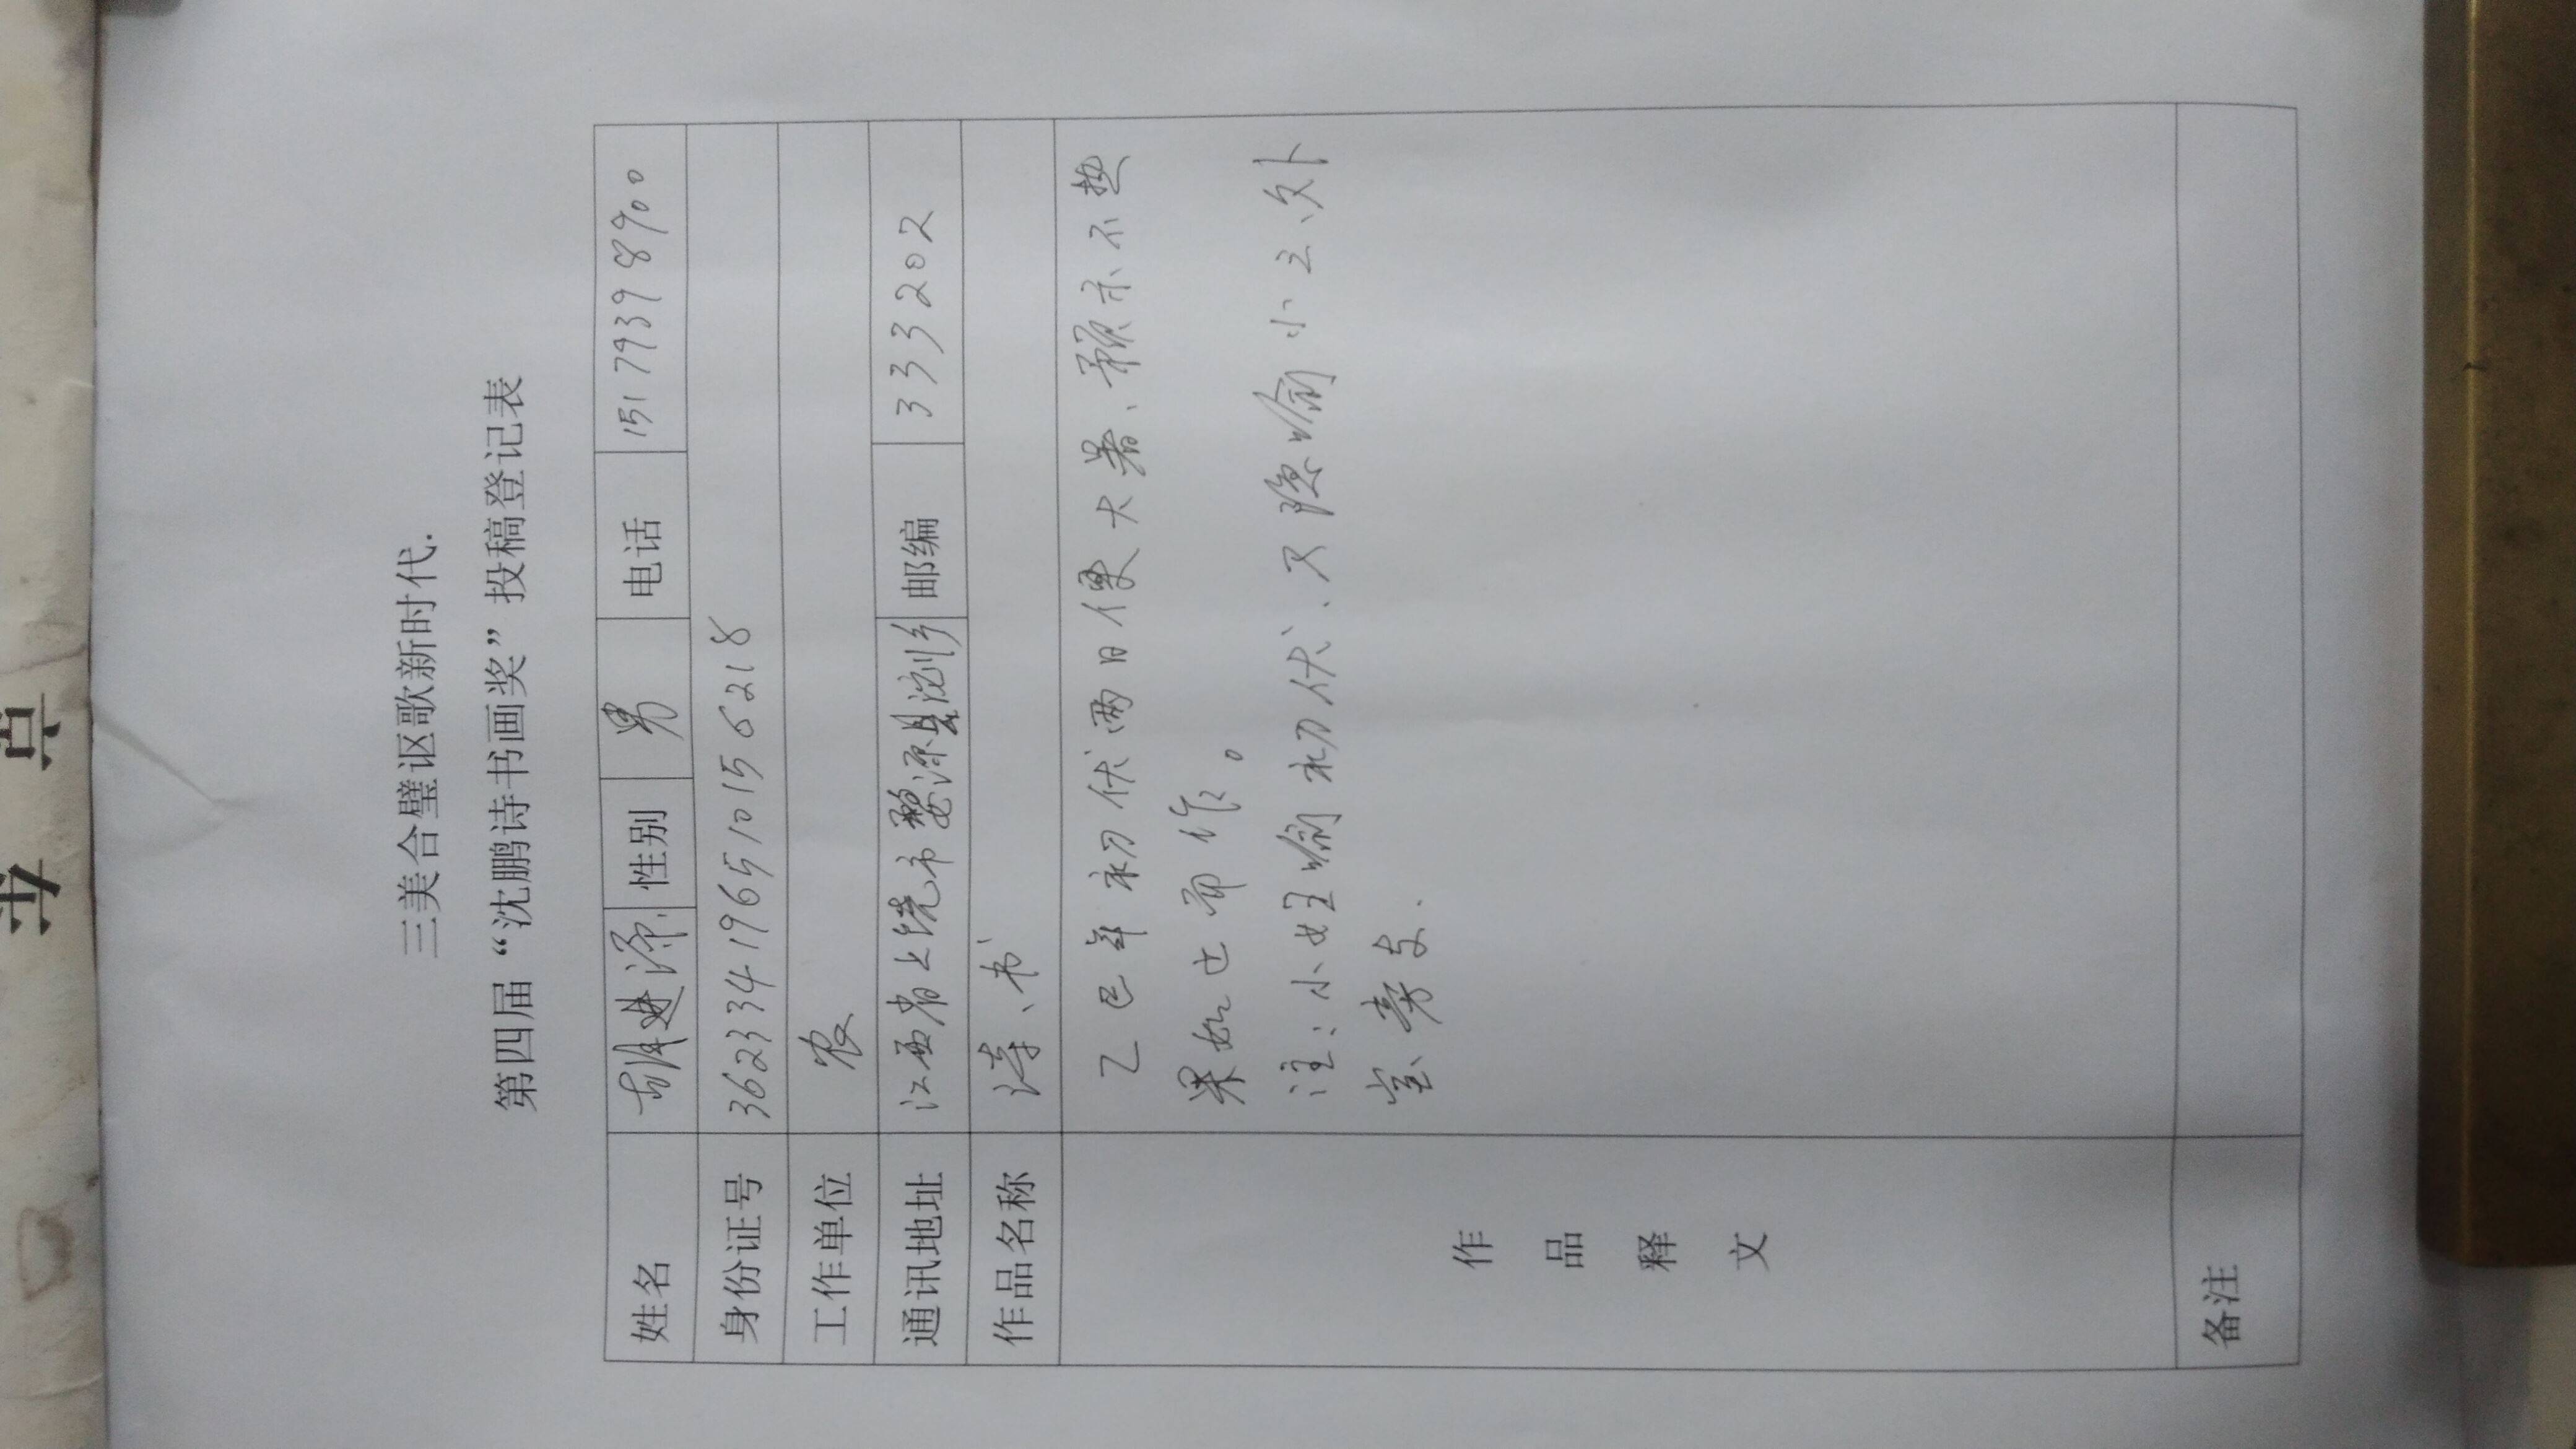 三美合璧讴歌新时代.
第四届“沈鹏诗书画奖”投稿登记表
姓名 胡进源 性别 男 电话 151 7939 8900
身份证号 362334196510156218
工作单位 农
通讯地址 江西省上饶市婺源县沱川乡 邮编 333202
作品名称 诗、书
作品释文
乙巳年初伏两日便大暑、颖示不热
果如此而作。
注:小女王喻初伏、又隐喻小三、外
室、旁支.
备注
京
东